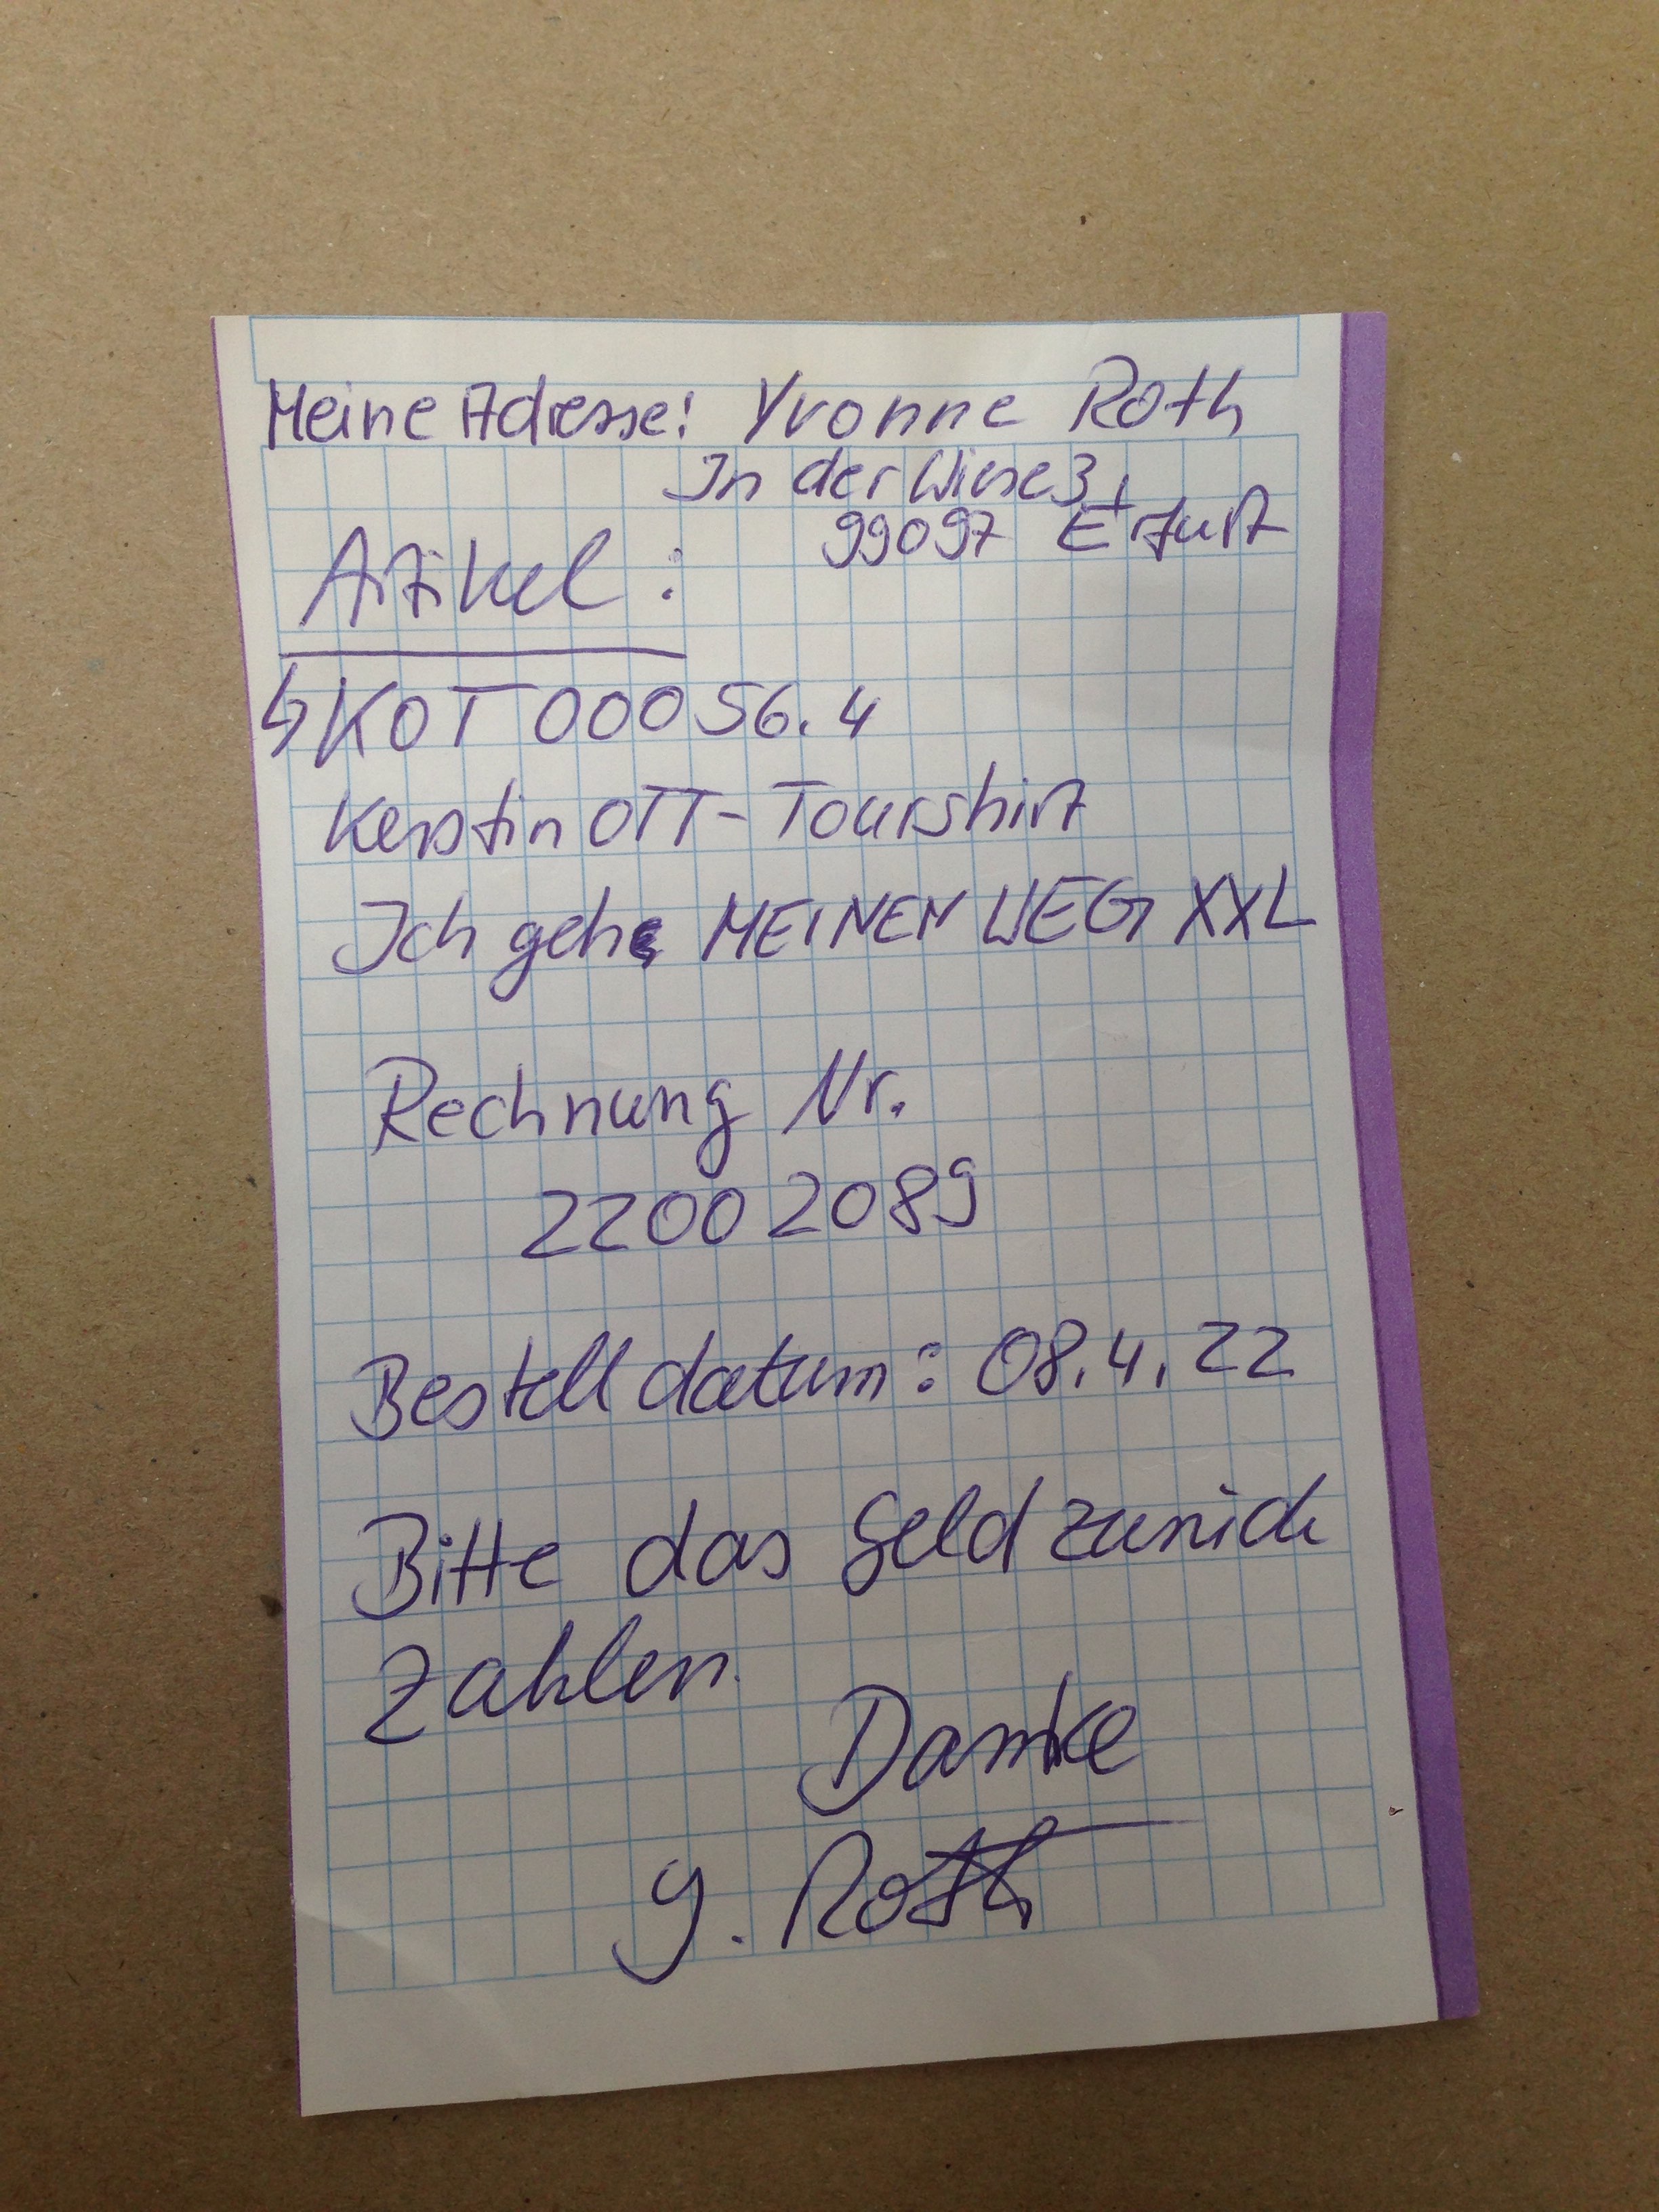 Meine Adresse: Yvonne Roth
In der Wiese 3,
99097 Erfurt
Artikel:
↳ KOT00056.4
Kerstin OTT-Tourshirt
Ich gehe MEINEN WEG XXL
Rechnung Nr.
22002089
Bestelldatum: 08.4.22
Bitte das Geld zurück
zahlen.
Danke
Y. Roth